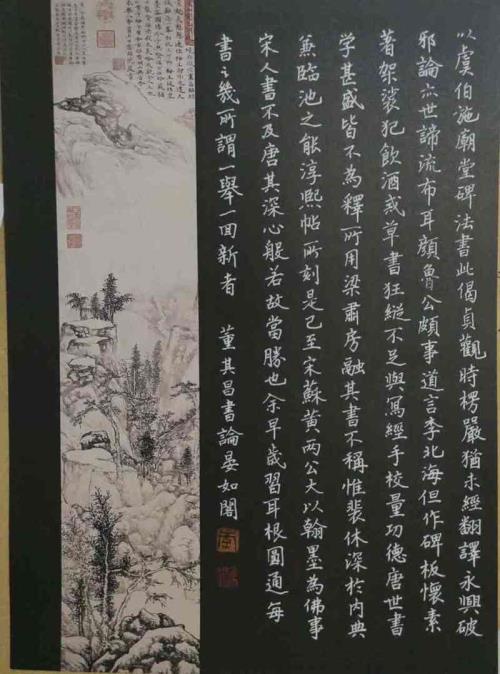 以虞伯施廟堂碑法書此偈貞觀時楞嚴猶未經翻譯永興破
邪論亦世諦流布耳顏魯公頗事道言李北海但作碑板懷素
著袈裟犯飲酒戒草書狂縱不足與寫經手校量功德唐世書
學甚盛皆不為釋所用梁肅房融其書不稱惟裴休深於內典
兼臨池之能淳熙帖所刻是已至宋蘇黃兩公大以翰墨為佛事
宋人書不及唐其深心般若故當勝也余早歲習耳根圓通每
書之幾所謂一舉一回新者 董其昌書論晏如閣